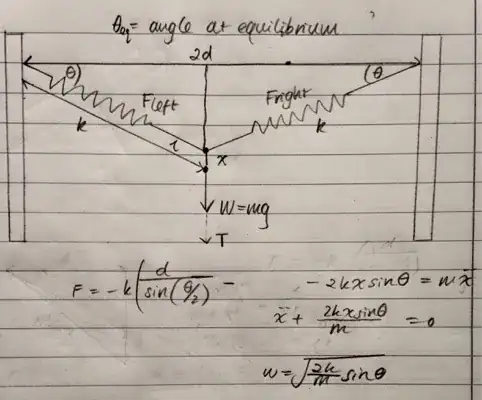 θeq = angle at equilibrium
2d
θ θ
Fleft Fright
k k
l x
W=mg
T
F = -k(d/sin(θ/2) -
-2kx sinθ = mẍ
ẍ + 2kx sinθ/m = 0
w = √(2k/m) sinθ